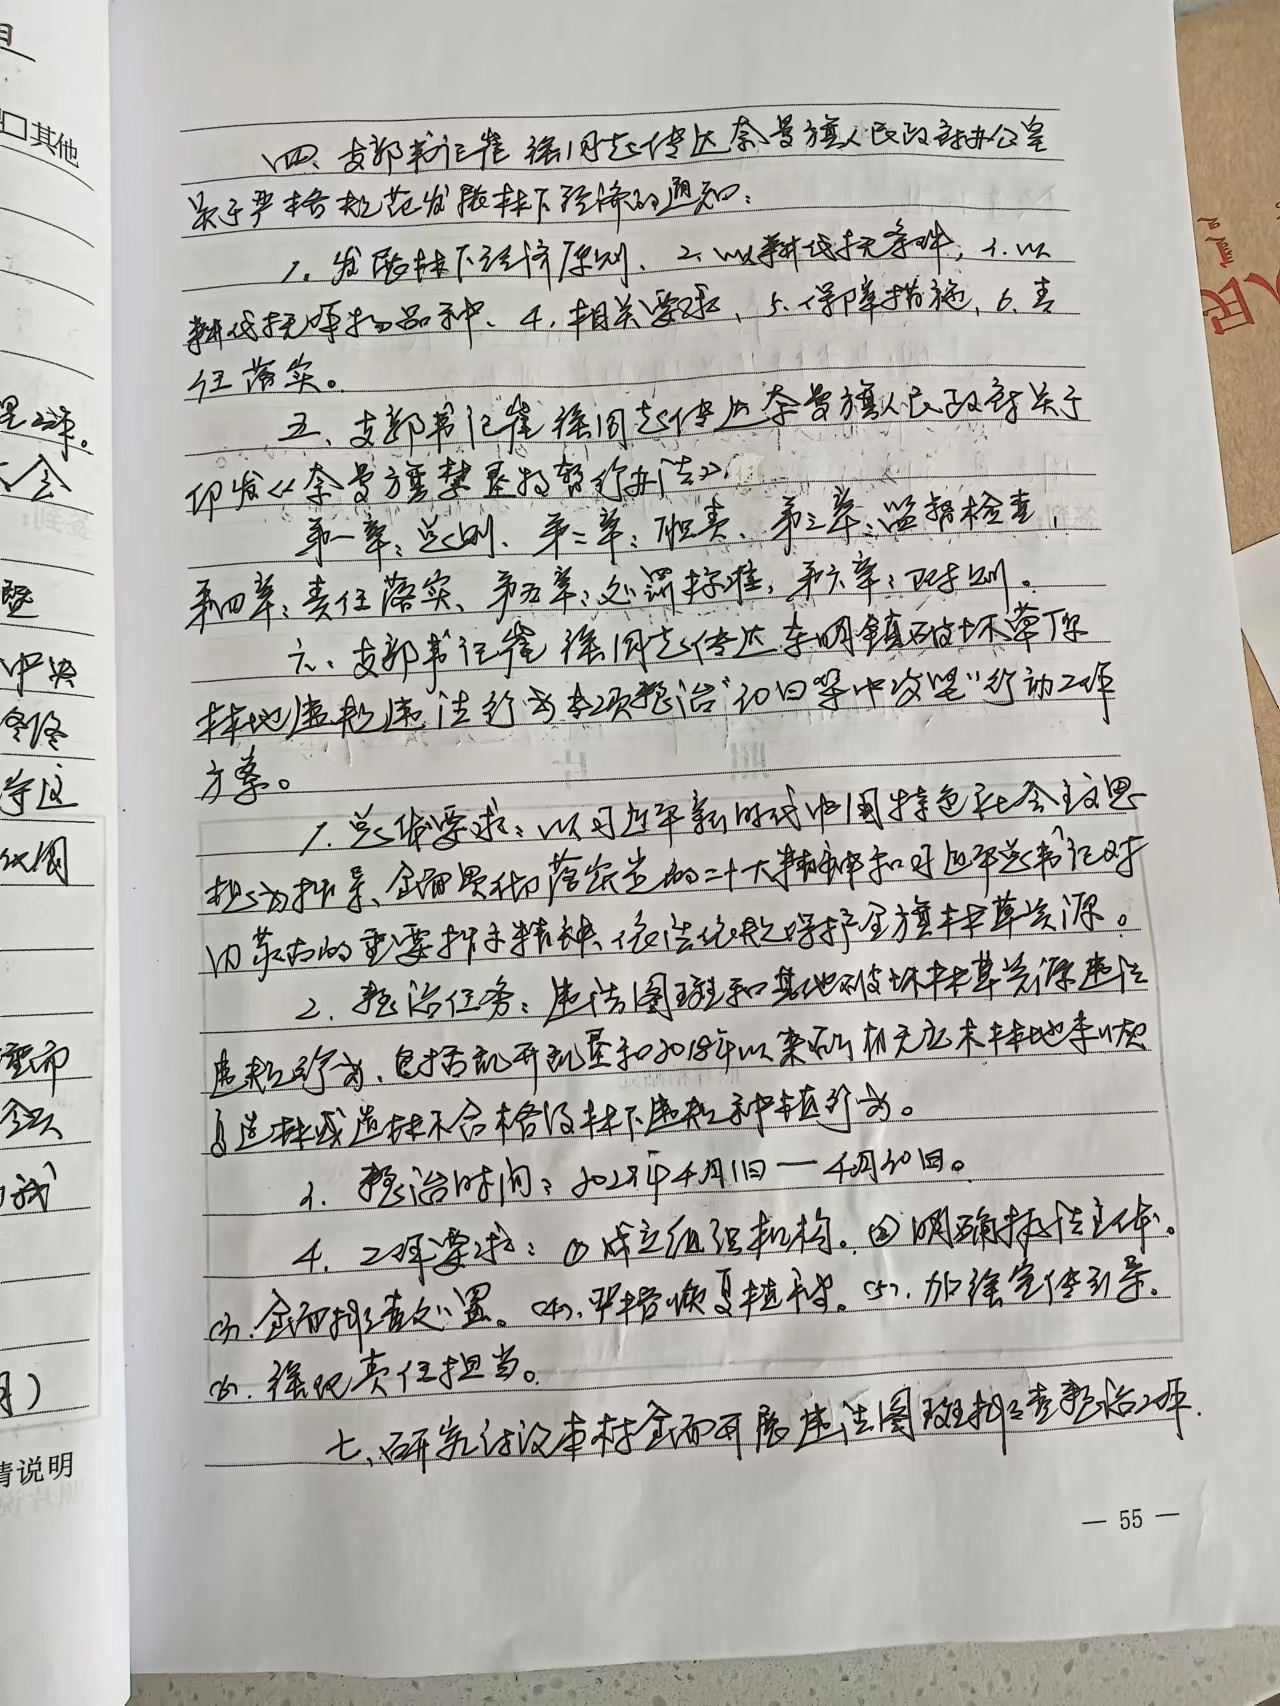 其他
四、支部书记崔强同志传达奈曼旗人民政府办公室
关于严格规范发展林下经济的通知：
1. 发展林下经济原则、2. 以耕代抚条件，3. 以
耕代抚作物品种、4. 相关要求、5. 保障措施、6. 责
任落实。
五、支部书记崔强同志传达奈曼旗人民政府关于
印发《奈曼旗禁垦牧暂行办法》。
第一章：总则、第二章：职责、第三章：监督检查，
第四章：责任落实、第五章：处罚标准，第六章：附则。
六、支部书记崔强同志传达东明镇破坏草原
林地违规违法行为专项整治“30日集中攻坚”行动工作
方案。
1. 总体要求：以习近平新时代中国特色社会主义思
想为指导、全面贯彻落实党的二十大精神和习近平总书记对
内蒙古的重要指示精神、依法依规保护全旗林草资源。
2. 整治任务：违法图斑和其他破坏林草资源违法
违规行为、包括乱开乱垦和2018年以来有林无立木林地未恢
复造林或造林不合格及林下违规种植行为。
3. 整治时间：2023年4月1日—4月30日。
4. 工作要求：① 成立组织机构。② 明确执法主体。
(3). 全面排查处置。(4). 严格恢复植被。(5). 加强宣传引导。
(6). 强化责任担当。
七、研究讨论本村全面开展违法图斑排查整治工作.
— 55 —
情说明